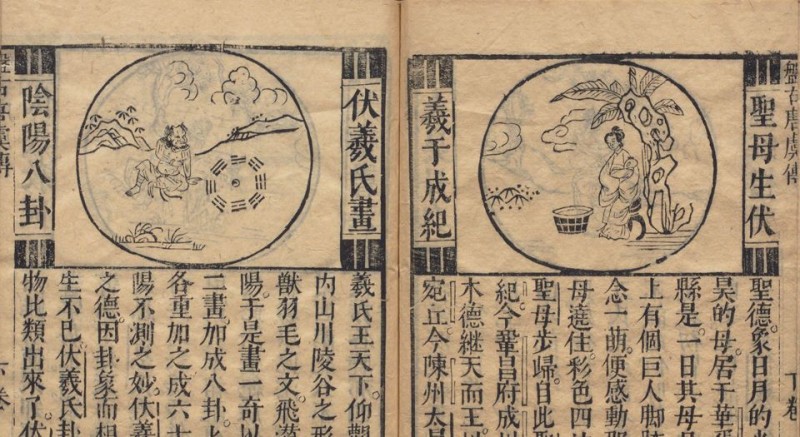 盤古唐虞傳
下卷
聖母生伏
羲于成紀
聖德象日月的
昊的母居于華
縣是一日其母
上有個巨人脚
念一萌便感動
母遶住彩色四
聖母步歸自此
紀今鞏昌府成
木德繼天而王
宛丘今陳州太昊
伏羲氏畫
陰陽八卦
羲氏王天下仰觀
内山川陵谷之形
獸羽毛之文飛
陽于是畫一奇以
二畫加成八卦
各重加之成六十
陽不測之妙伏羲
之德因卦象而相
生不已伏羲氏卦
物比類出來了伏
下卷